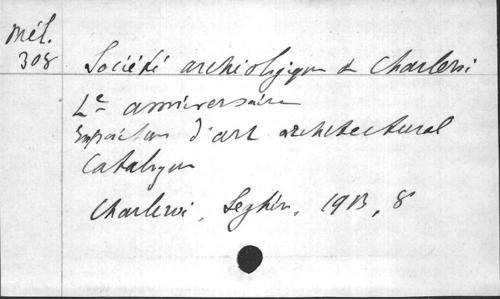 Mél.
308
Société archéologique de Charleroi
Le anniversaire
Exposition d'art architectural
Catalogue
Charleroi, 1913, 8